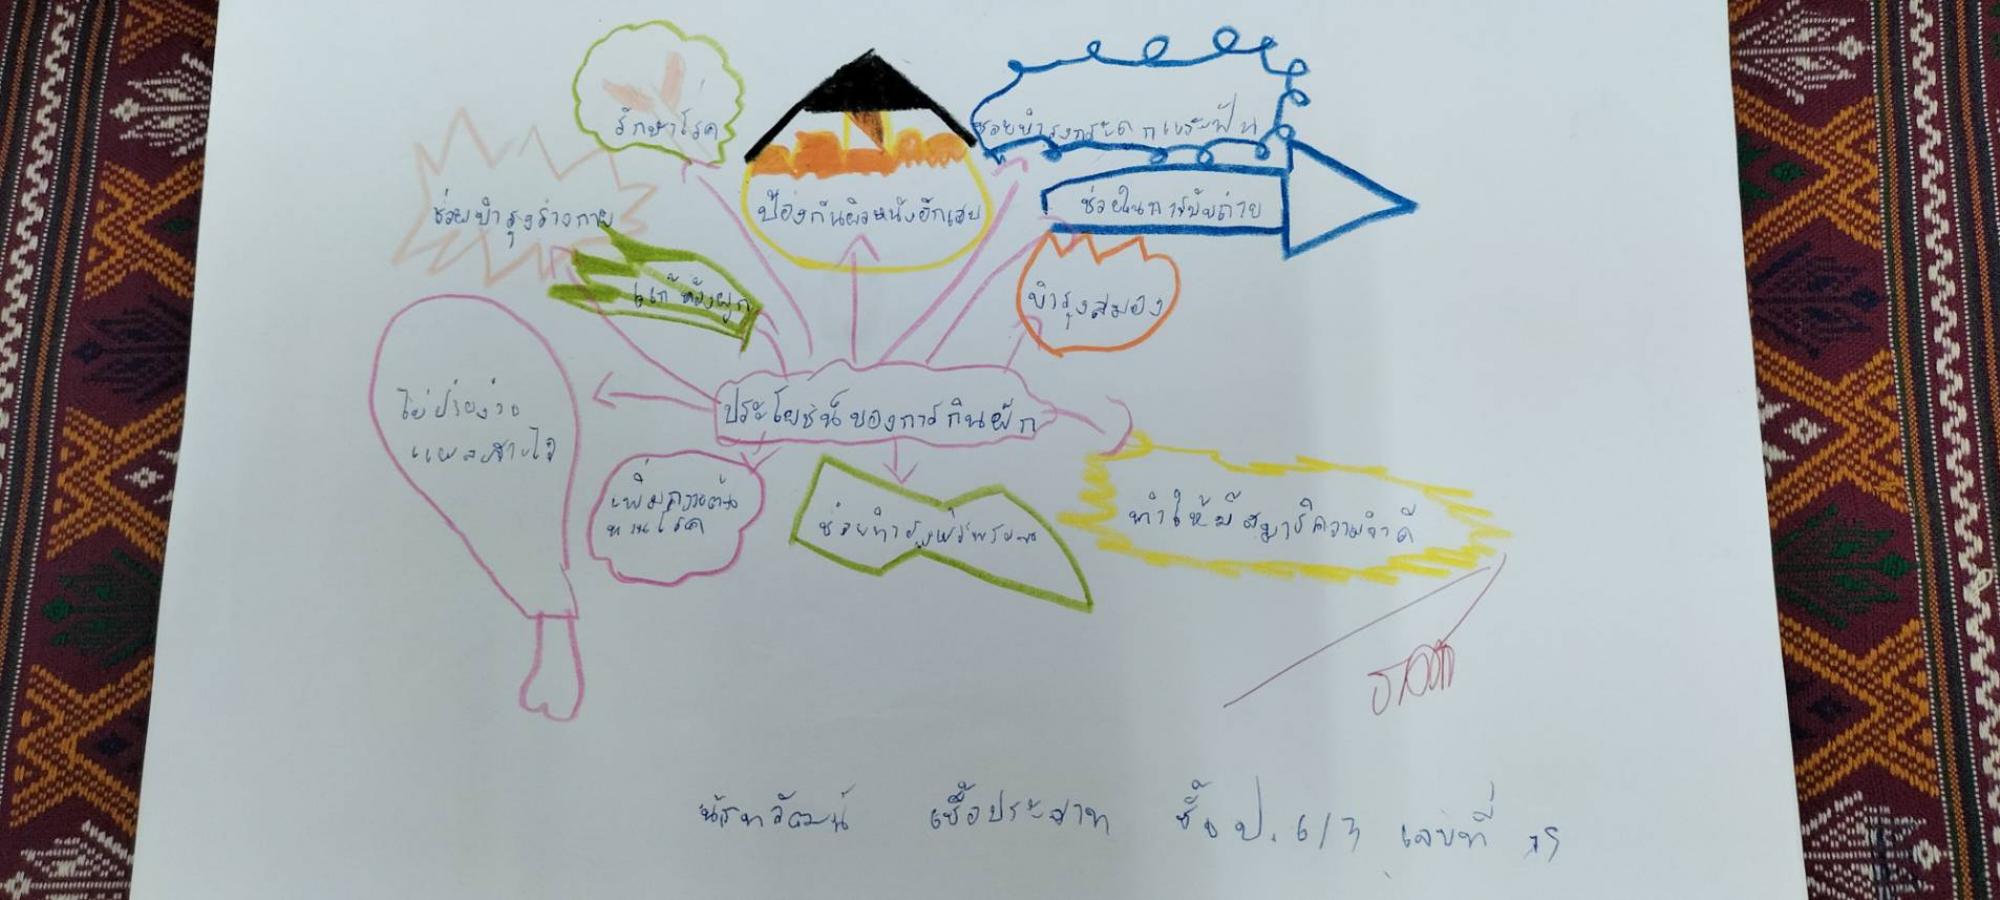 รักษาโรค
ช่วยบำรุงกระดูกและฟัน
ป้องกันผิวหนังอักเสบ
ช่วยในการขับถ่าย
ช่วยบำรุงร่างกาย
แก้ท้องผูก
บำรุงสมอง
ประโยชน์ของการกินผัก
ไม่ป่วยง่าย
เพิ่มความต้าน
ทานโรค
ทำให้มีสมาธิความจำดี
เชื้อประสาท ชั้น ป.6/3 เลขที่